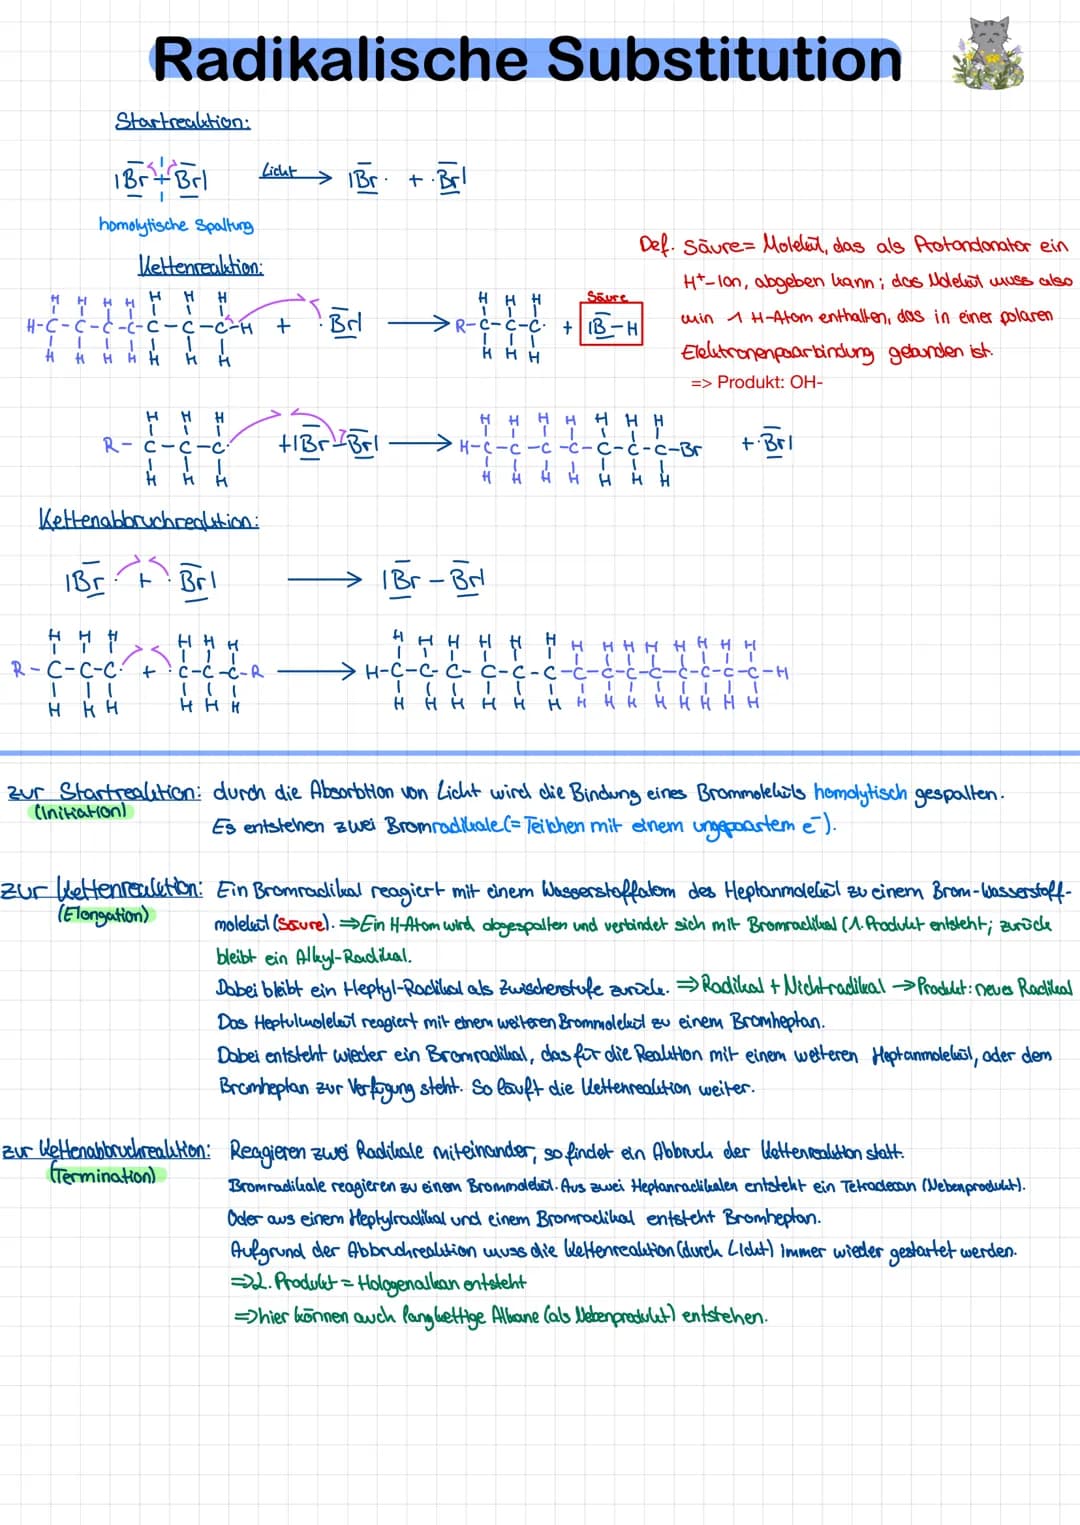 Radikalische Substitution
Startreaktion:
|Br + Br| Licht → |Br· + ·Br|
homolytische Spaltung
Kettenreaktion:
Def. Säure= Molekül, das als Protondonator ein
H+-Ion, abgeben kann; das Molekül muss also
min 1 H-Atom enthalten, das in einer polaren
Elektronenpaarbindung gebunden ist.
=> Produkt: OH-
H H H H H H H
H-C-C-C-C-C-C-C-H + ·Br| → R-C-C-C· + |B-H
H H H H H H H
H H H
Säure
H H H
H H H
R-C-C-C· + |Br-Br| → H-C-C-C-C-C-C-C-Br + ·Br|
H H H
H H H H H H H
H H H H H H H
Kettenabbruchreaktion:
|Br· + ·Br| → |Br-Br|
H H H H H H
R-C-C-C· + ·C-C-C-R → H-C-C-C-C-C-C-C-C-C-C-C-C-C-C-H
H H H H H H
zur Startreaktion: durch die Absorbtion von Licht wird die Bindung eines Brommoleküls homolytisch gespalten.
(Initiation)
Es entstehen zwei Bromradikale (= Teilchen mit einem ungepaartem e-).
zur Kettenreaktion: Ein Bromradikal reagiert mit einem Wasserstoffatom des Heptanmolekül zu einem Brom-Wasserstoff-
(Elongation)
molekül (Säure). ⇒ Ein H-Atom wird abgespalten und verbindet sich mit Bromradikal (1. Produkt entsteht; zurück
bleibt ein Alkyl-Radikal.
Dabei bleibt ein Heptyl-Radikal als Zwischenstufe zurück. ⇒ Radikal + Nichtradikal → Produkt: neues Radikal
Das Heptulmolekül reagiert mit einem weiteren Brommolekül zu einem Bromheptan.
Dabei entsteht wieder ein Bromradikal, das für die Reaktion mit einem weiteren Heptanmolekül, oder dem
Bromheptan zur Verfügung steht. So läuft die Kettenreaktion weiter.
zur Kettenabbruchreaktion: Reagieren zwei Radikale miteinander, so findet ein Abbruch der Kettenreaktion statt.
(Termination)
Bromradikale reagieren zu einem Brommolekül. Aus zwei Heptanradikalen entsteht ein Tetradecan (Nebenprodukt).
Oder aus einem Heptylradikal und einem Bromradikal entsteht Bromheptan.
Aufgrund der Abbruchreaktion muss die Kettenreaktion (durch Licht) immer wieder gestartet werden.
⇒ 2. Produkt = Halogenalkan entsteht
⇒ hier können auch langkettige Alkane (als Nebenprodukt) entstehen.